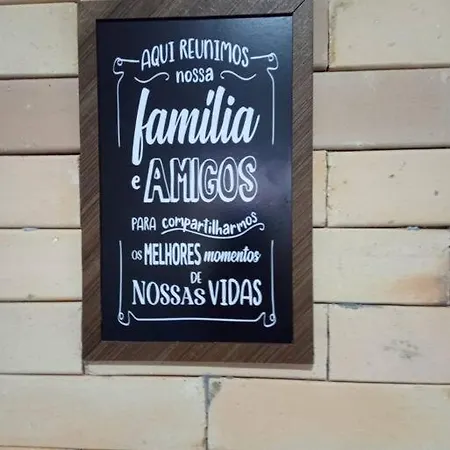 AQUI REUNIMOS
nossa
família
e AMIGOS
PARA compartilharmos
OS MELHORES momentos
DE
NOSSAS VIDAS